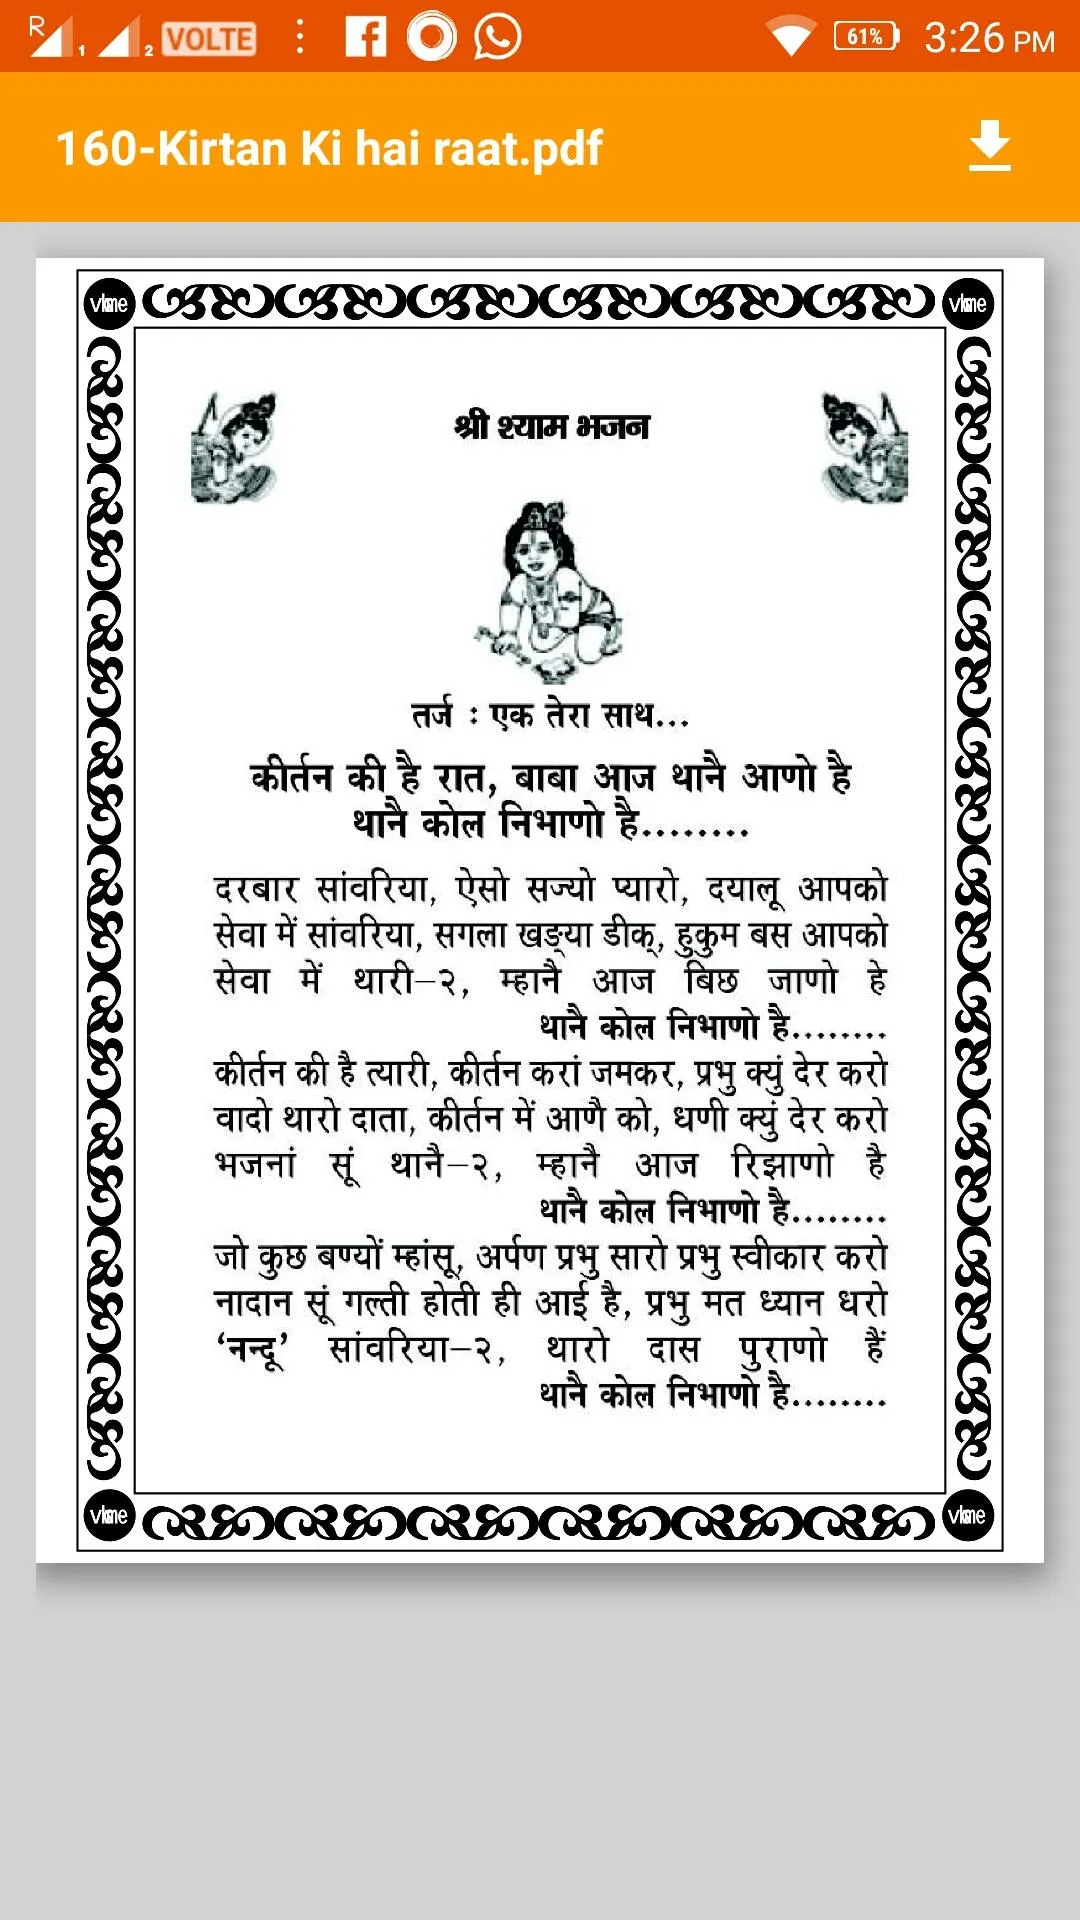 R 1 2 VOLTE 61% 3:26 PM
160-Kirtan Ki hai raat.pdf
श्री श्याम भजन
तर्ज : एक तेरा साथ...
कीर्तन की है रात, बाबा आज थानै आणो है
थानै कोल निभाणो है........
दरबार सांवरिया, ऐसो सज्यो प्यारो, दयालू आपको
सेवा में सांवरिया, सगला खड्या डीक्, हुकुम बस आपको
सेवा में थारी-२, म्हानै आज बिछ जाणो हे
थानै कोल निभाणो है........
कीर्तन की है त्यारी, कीर्तन करां जमकर, प्रभु क्युं देर करो
वादो थारो दाता, कीर्तन में आणै को, धणी क्युं देर करो
भजनां सूं थानै-२, म्हानै आज रिझाणो है
थानै कोल निभाणो है........
जो कुछ बण्यों म्हांसू, अर्पण प्रभु सारो प्रभु स्वीकार करो
नादान सूं गल्ती होती ही आई है, प्रभु मत ध्यान धरो
‘नन्दू’ सांवरिया-२, थारो दास पुराणो हैं
थानै कोल निभाणो है........